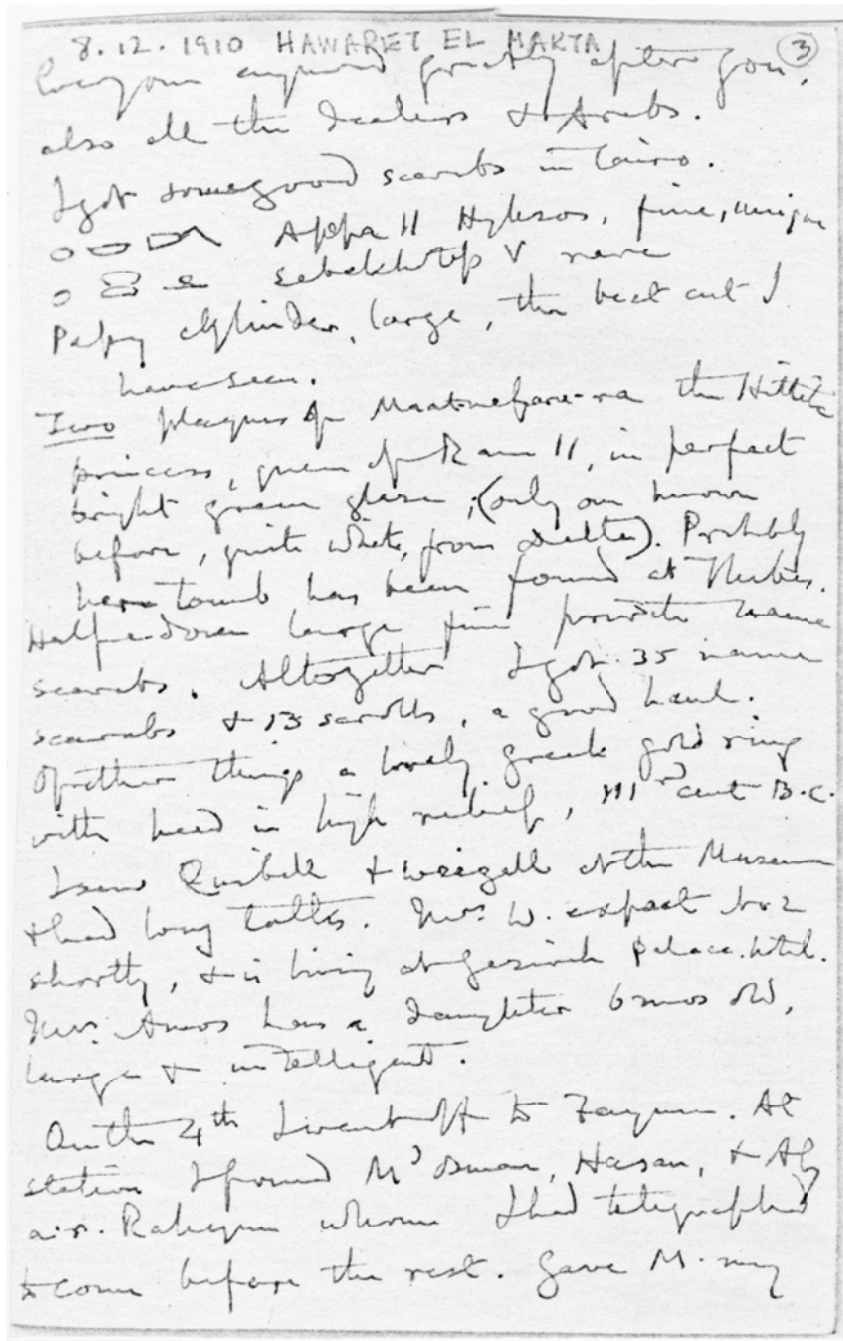 8.12.1910 HAWARET EL MAKTA (3)
Everyone enquired greatly after you,
also all the dealers & Arabs.
I got some good scarabs in Cairo.
Appa II Hyksos, fine, unique
Sebekhotep V rare
Pepy cylinder, large, the best cut I
have seen.
Two plaques of Maatnefrure-ra the Hittite
princess, queen of Ram II, in perfect
bright green glaze; (only one known
before, quite white, from Delta). Probably
her tomb has been found at Thebes.
Half a dozen large fine private name
scarabs. Altogether I got 35 name
scarabs & 13 scrolls, a good haul.
Of other things a lovely greek gold ring
with head in high relief, III rd cent B.C.
I saw Quibell & Weigall at the Museum
& had long talks. Mrs. W. expects No 2
shortly, & is living at Gezireh Palace hotel.
Mrs. Amos has a daughter 6 mos old,
large & intelligent.
On the 4th I went off to Fayum. At
station I found Md Osman, Hasan, & Aly
a.r. Rahym whom I had telegraphed
to come before the rest. Gave M. my